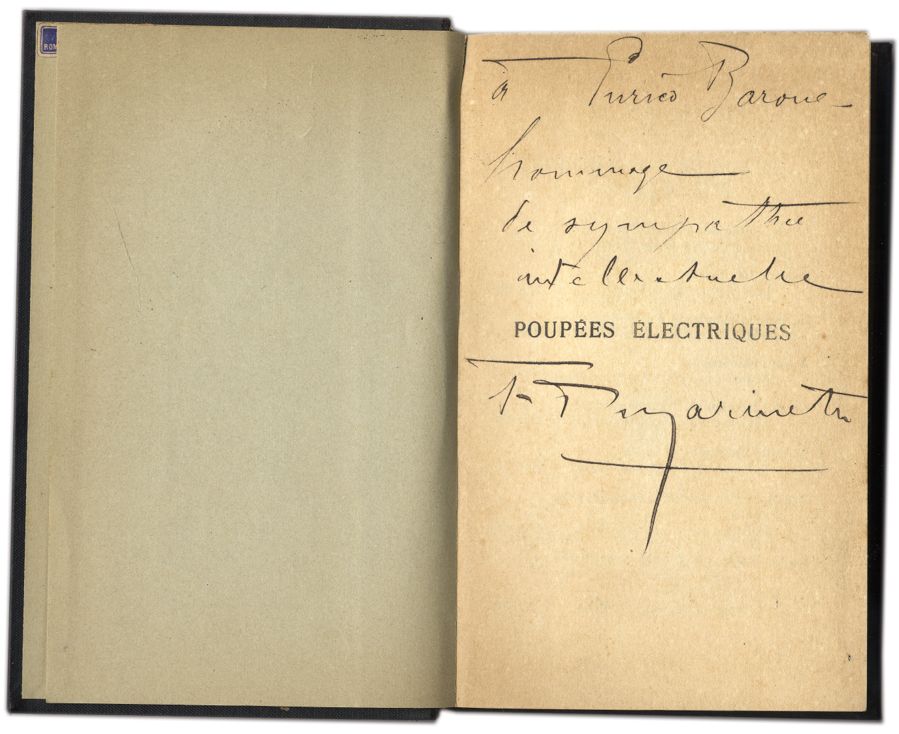 ROM
à Enrico Barone
hommage
de sympathie
intellectuelle
POUPÉES ÉLECTRIQUES
F T Marinetti